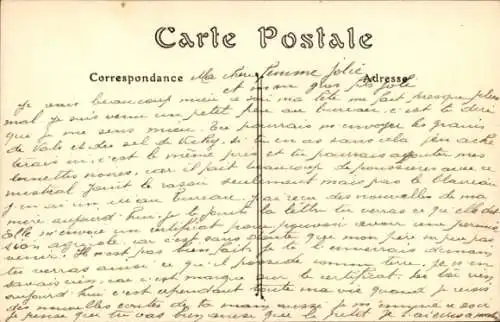 Carte Postale
Correspondance
Adresse
Ma chère Femme jolie
et mon gros joli
Je vais beaucoup mieux ce soir ma tête me fait presque plus
mal je suis venu un petit peu au bureau c'est te dire
que je me sens mieux. Tu pourrais m'envoyer les grains
de Vals et des sel de Vichy. Si tu en as sans cela j'en achè
terais ici, c'est le même prix et tu pourrais ajouter mes
lorgnettes noires, car il fait beaucoup de poussières avec ce
mistral. Joint le rasoir seulement mais pas de blaireau
j'en ai un au bureau. J'ai reçu des nouvelles de ma
mère aujourd'hui, je te joins la lettre tu verras ce qu'elle dit
Elle m'envoie un certificat pour pouvoir avoir une permis
sion agricole, car c'est sans doute que mon père n'peut pas
venir. Il n'est pas
tu verras ainsi ce qu'il possède comme terre, je n'en
savais rien, car c'est marqué sur le certificat.
aujourd'hui c'est cependant toute ma vie quand je reçois
des nouvelles écrites de ta main aussi je m'
je pense que tu vas bien ainsi que le petit Je t'aime